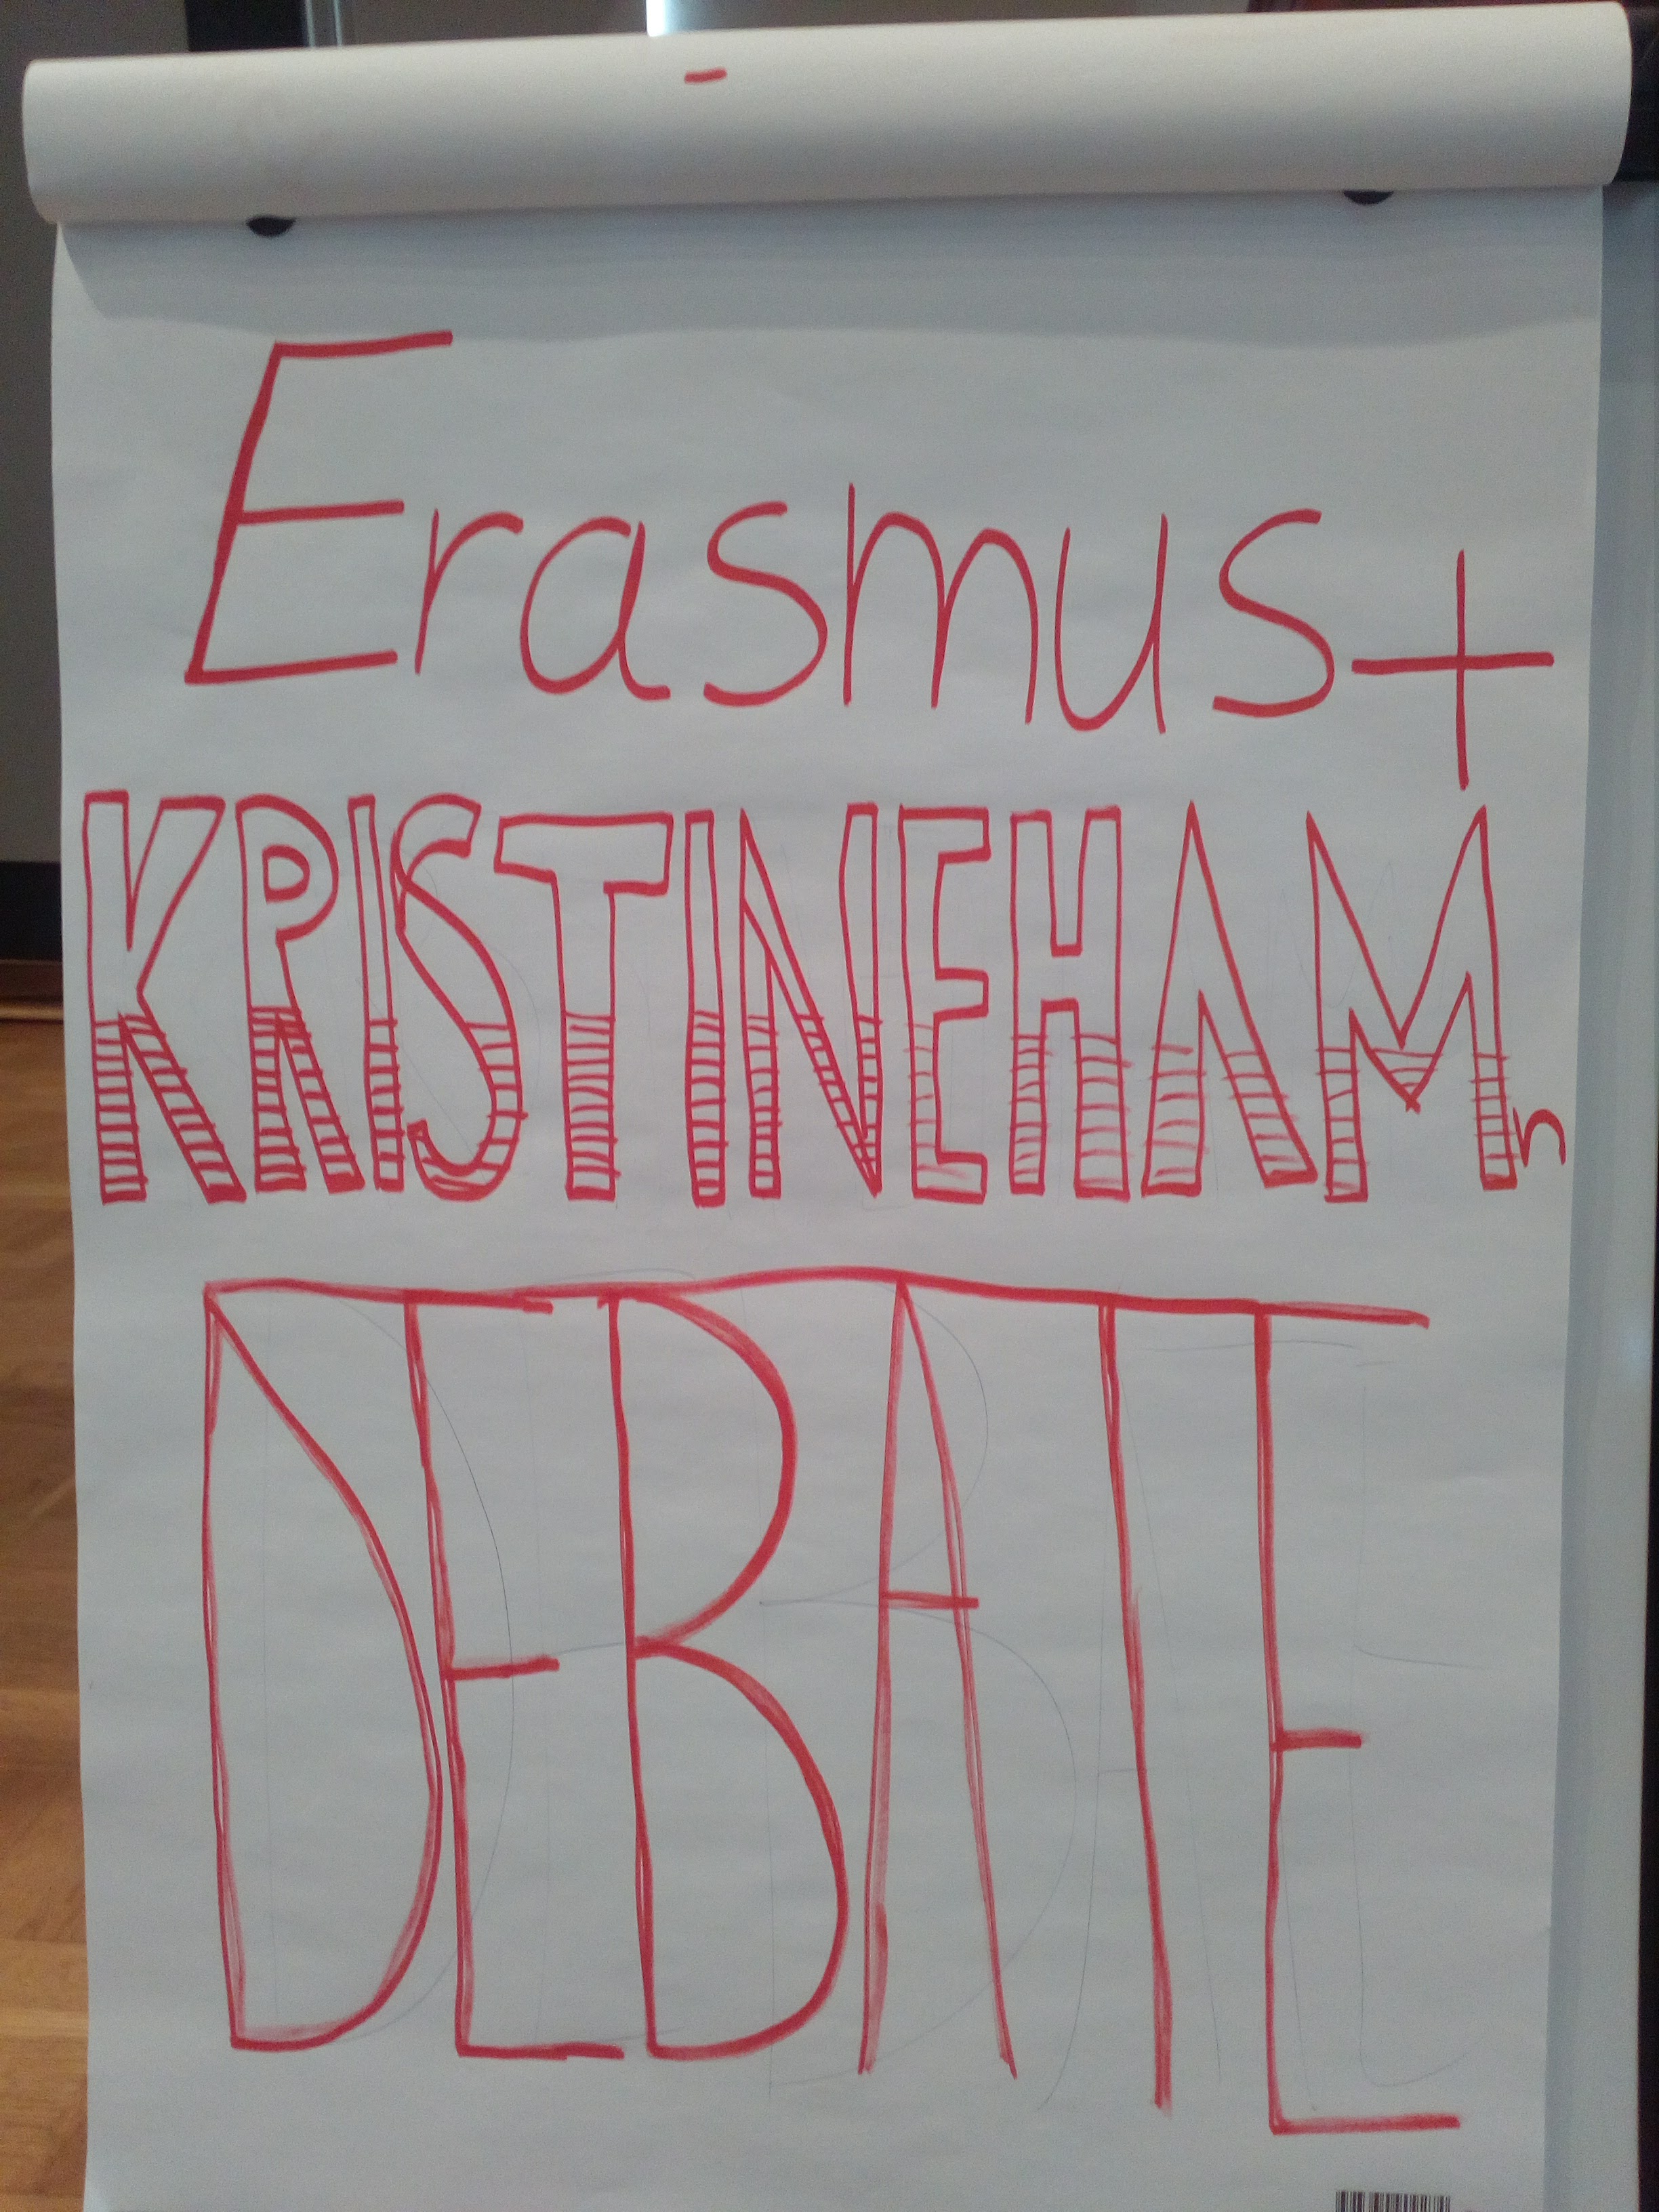 Erasmus+
KRISTINEHAMn
DEBATE